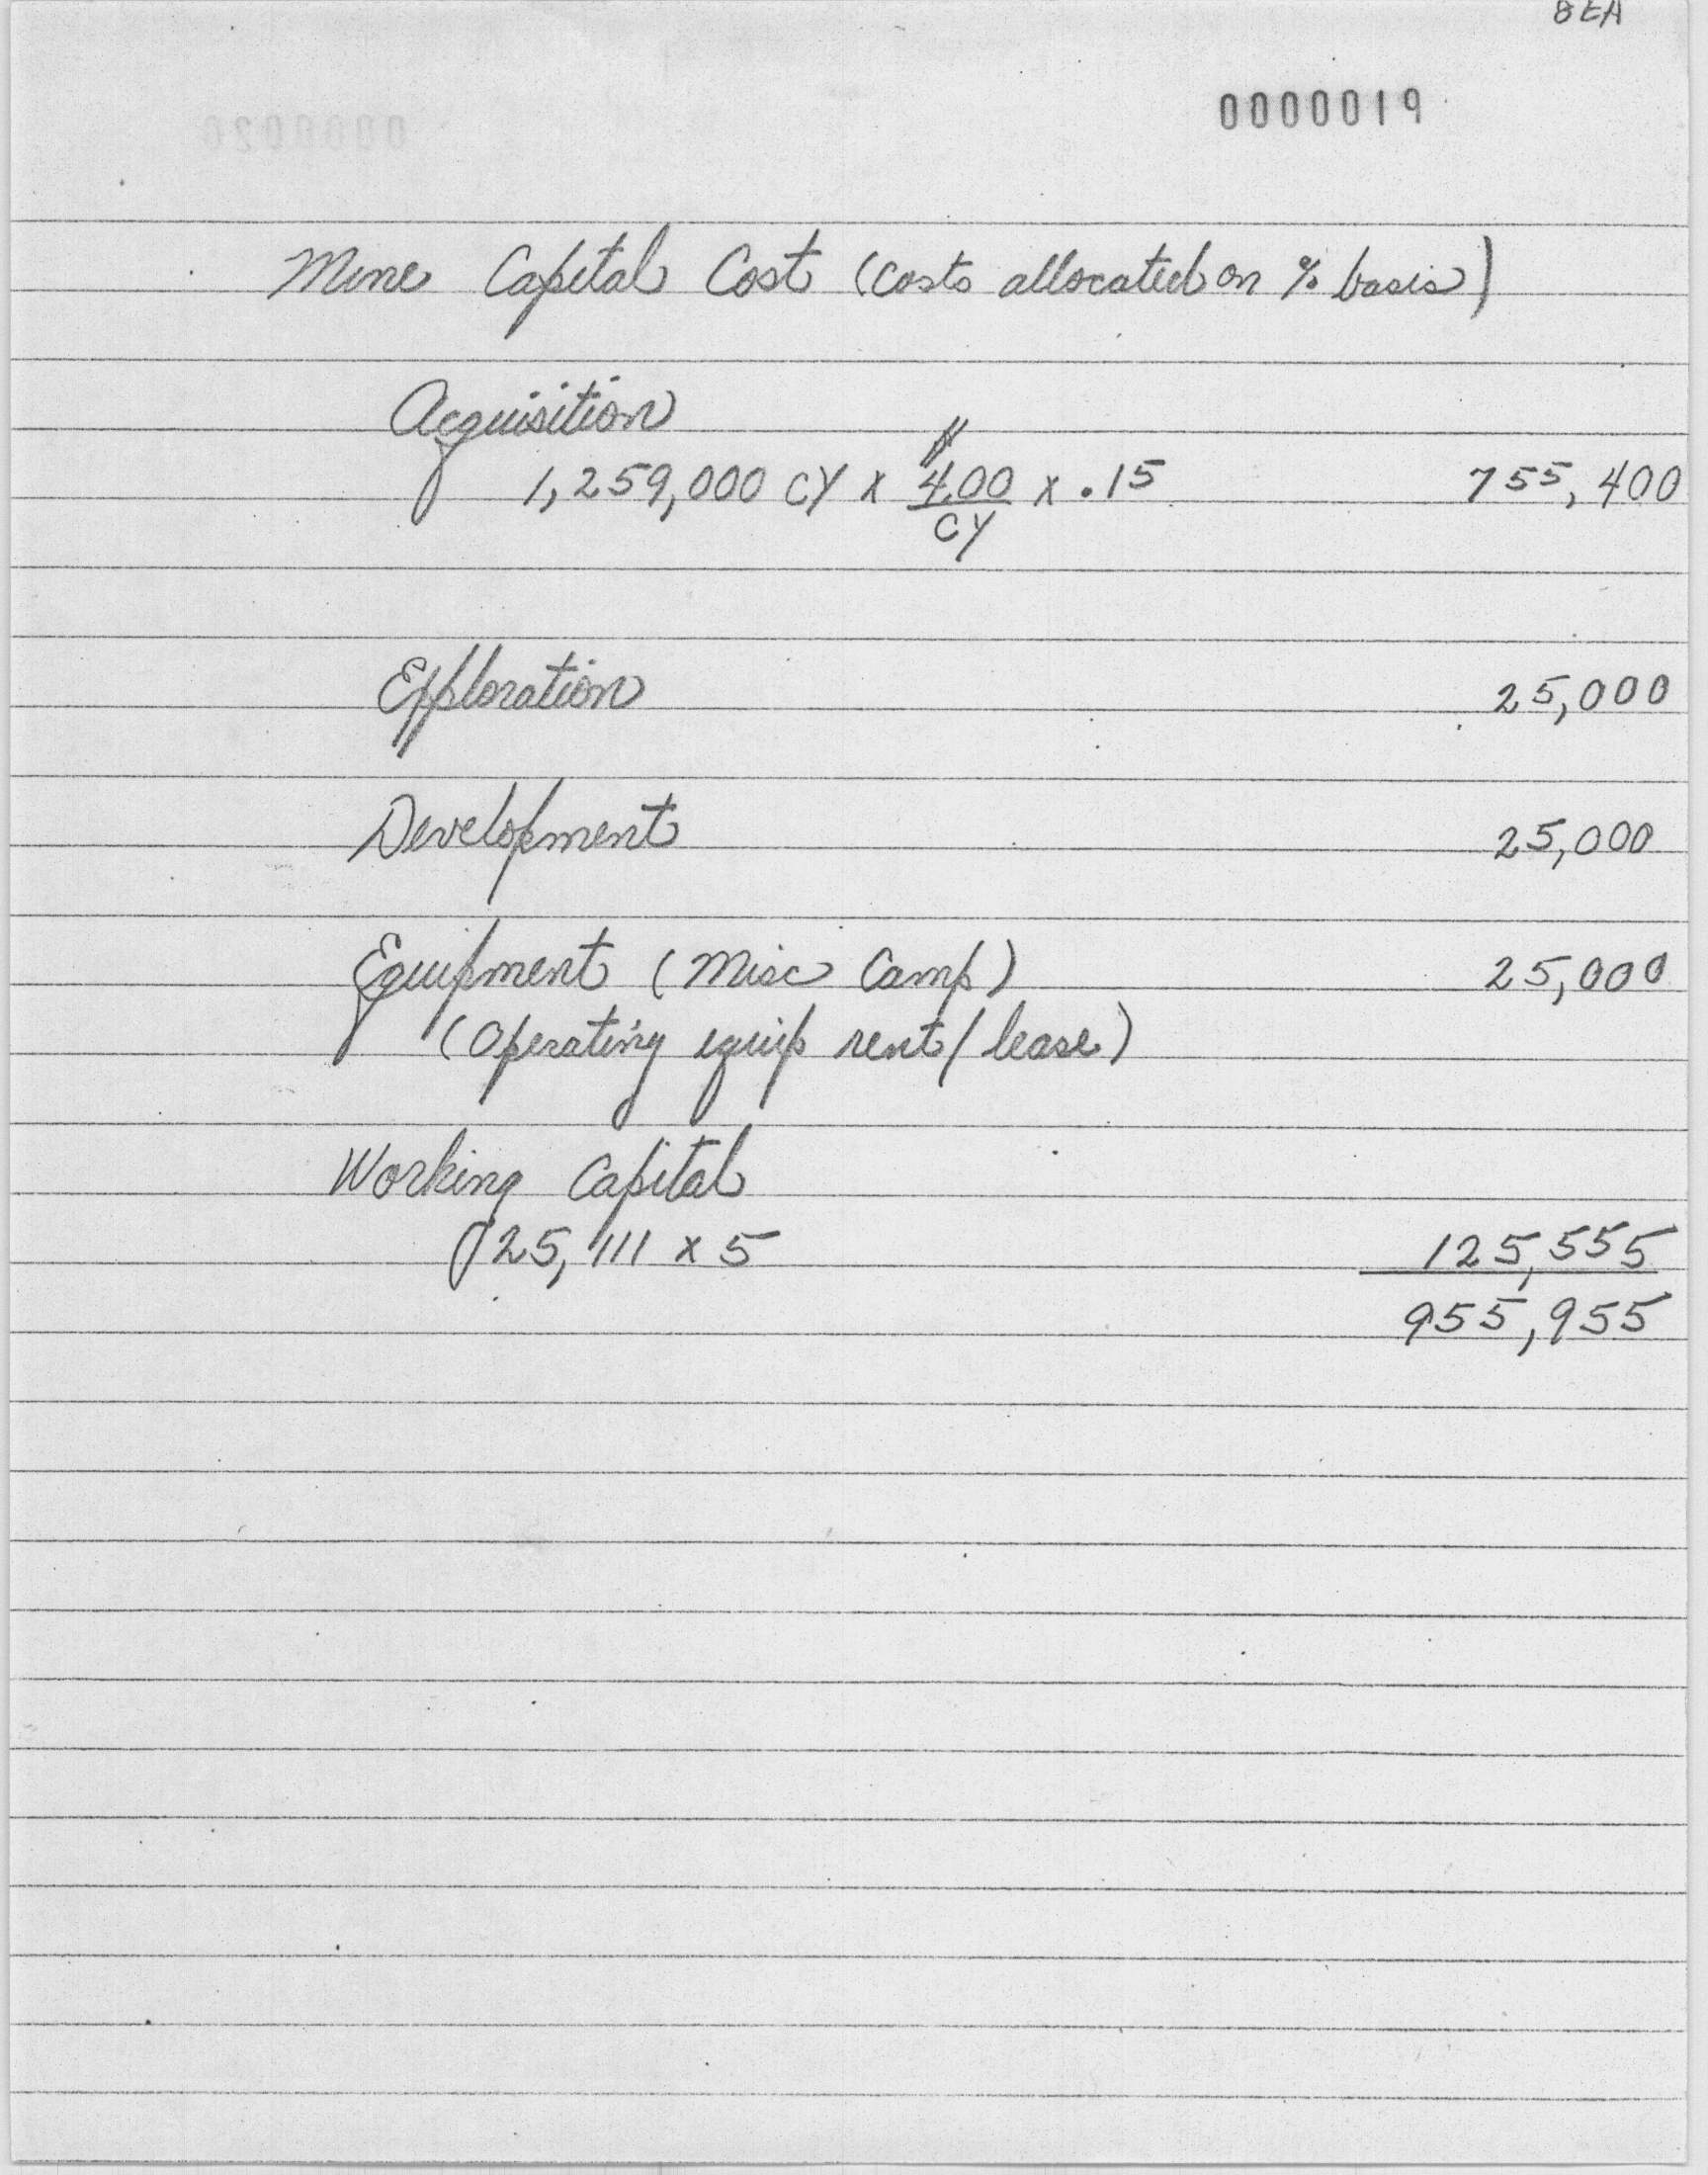 8EA
0000019
Mine Capital Cost (Costs allocated on % basis)
Acquisition
1,259,000 CY x $4.00/CY x .15 755,400
Exploration 25,000
Development 25,000
Equipment (Misc Camp) 25,000
(Operating equip rent/lease)
Working Capital
25,111 x 5 125,555
955,955